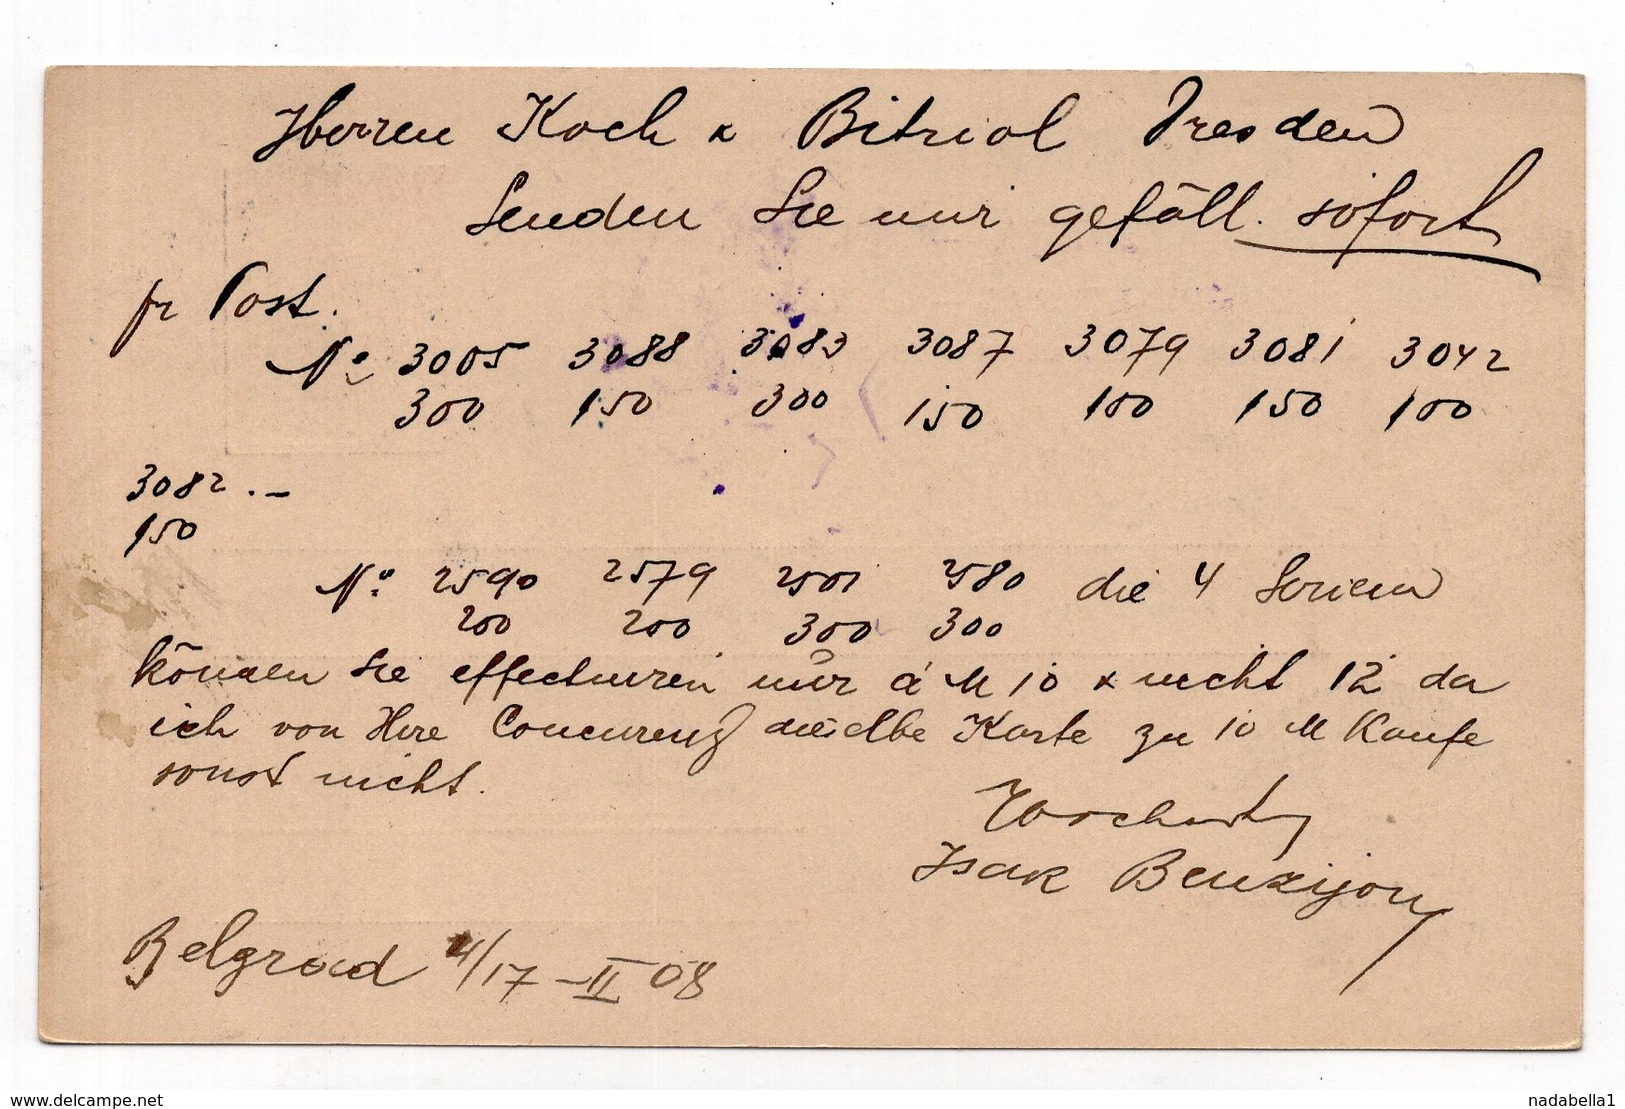 Herren Koch & Bitriol Dresden
Senden Sie mir gefäll. sofort
pr Post.
No. 3005 3088 3083 3087 3079 3081 3042
300 150 300 150 100 150 100
3082 . –
150
No. 2590 2579 2501 2580 die 4 Serien
200 200 300 300
können Sie effectuiren nur á M 10 & nicht 12 da
ich von Ihre Concurenz dieselbe Karte zu 10 M Kaufe
sonst nicht.
Isak Benzijon
Belgrad 4/17 – II 08
www.delcampe.net
nadabella1